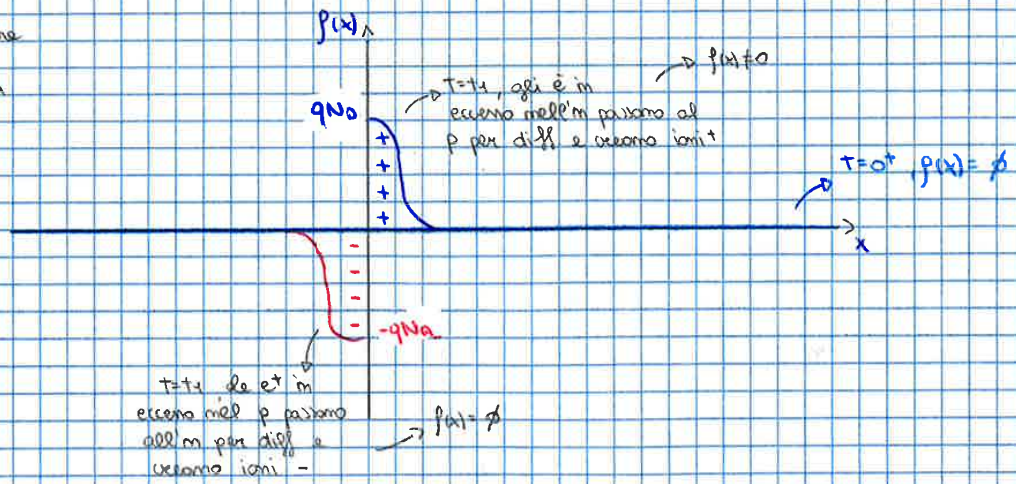 ρ(x)
ρ(x)≠0
T=t1, gli è in
eccesso nell'n passano al
p per diff e creano ioni+
qND
+
+
+
+
T=0⁺, ρ(x)=ø
x
-
-
-
-
-qNA
T=t1 le e⁺ in
eccesso nel p passano
all'n per diff e
creano ioni -
ρ(x)=ø